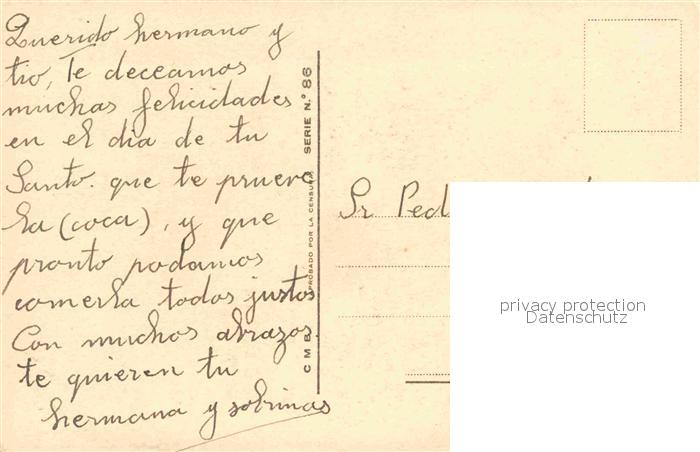 Querido hermano y
tio, Te deceamos
muchas felicidades
en el dia de tu
Santo. que te prueve
la (coca), y que
pronto podamos
comerla todos justos
Con muchos abrazos
te quieren tu
hermana y sobrinas
C M B. APROBADO POR LA CENSURA SERIE N.º 86
Sr Ped
privacy protection
Datenschutz